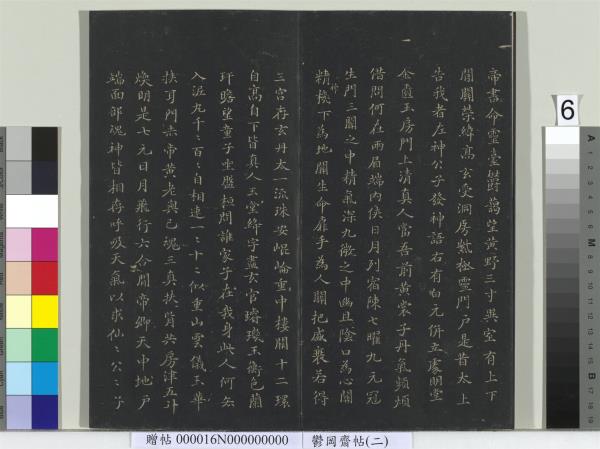 帝書命靈臺鬱藹望黃野三寸異室有上下
間關榮緯高玄受洞房紫極靈門戶是昔太上
告我者左神公子發神語右有白元併立處明堂
金匱玉房門上清真人當吾前黃裳子丹氣頻煩
借問何在兩眉端內俠日月列宿陳七曜九元冠
生門三關之中精氣深九微之中幽且陰口為心關
精神機下為地關生命扉手為人關把盛衰若得
三宮存玄丹太一流珠安崐崘重中樓閣十二環
自高自下皆真人玉堂絳宇盡玄宮璿璣玉衡色蘭
玕瞻望童子坐盤桓問誰家子在我身此人何去
入泥丸千〻百〻自相連一〻十〻似重山雲儀玉華
扶耳門赤帝黃老與己魂三真扶胥共房津五斗
煥明是七元日月飛行六合間帝鄉天中地戶
端面部魂神皆相存呼吸天氣以求仙〻公〻子
贈帖 000016N000000000 鬱岡齋帖(二)
6